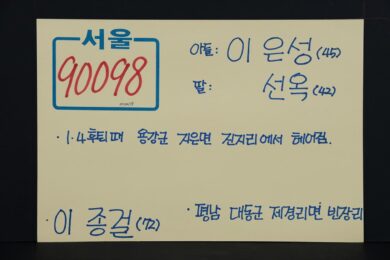 서울
90098
아들: 이 은성 (45)
딸: 선옥 (42)
· 1·4 후퇴때 용강군 지운면 진지리에서 헤어짐.
· 이 종걸 (72)
· 평남 대동군 제경리면 빈장리